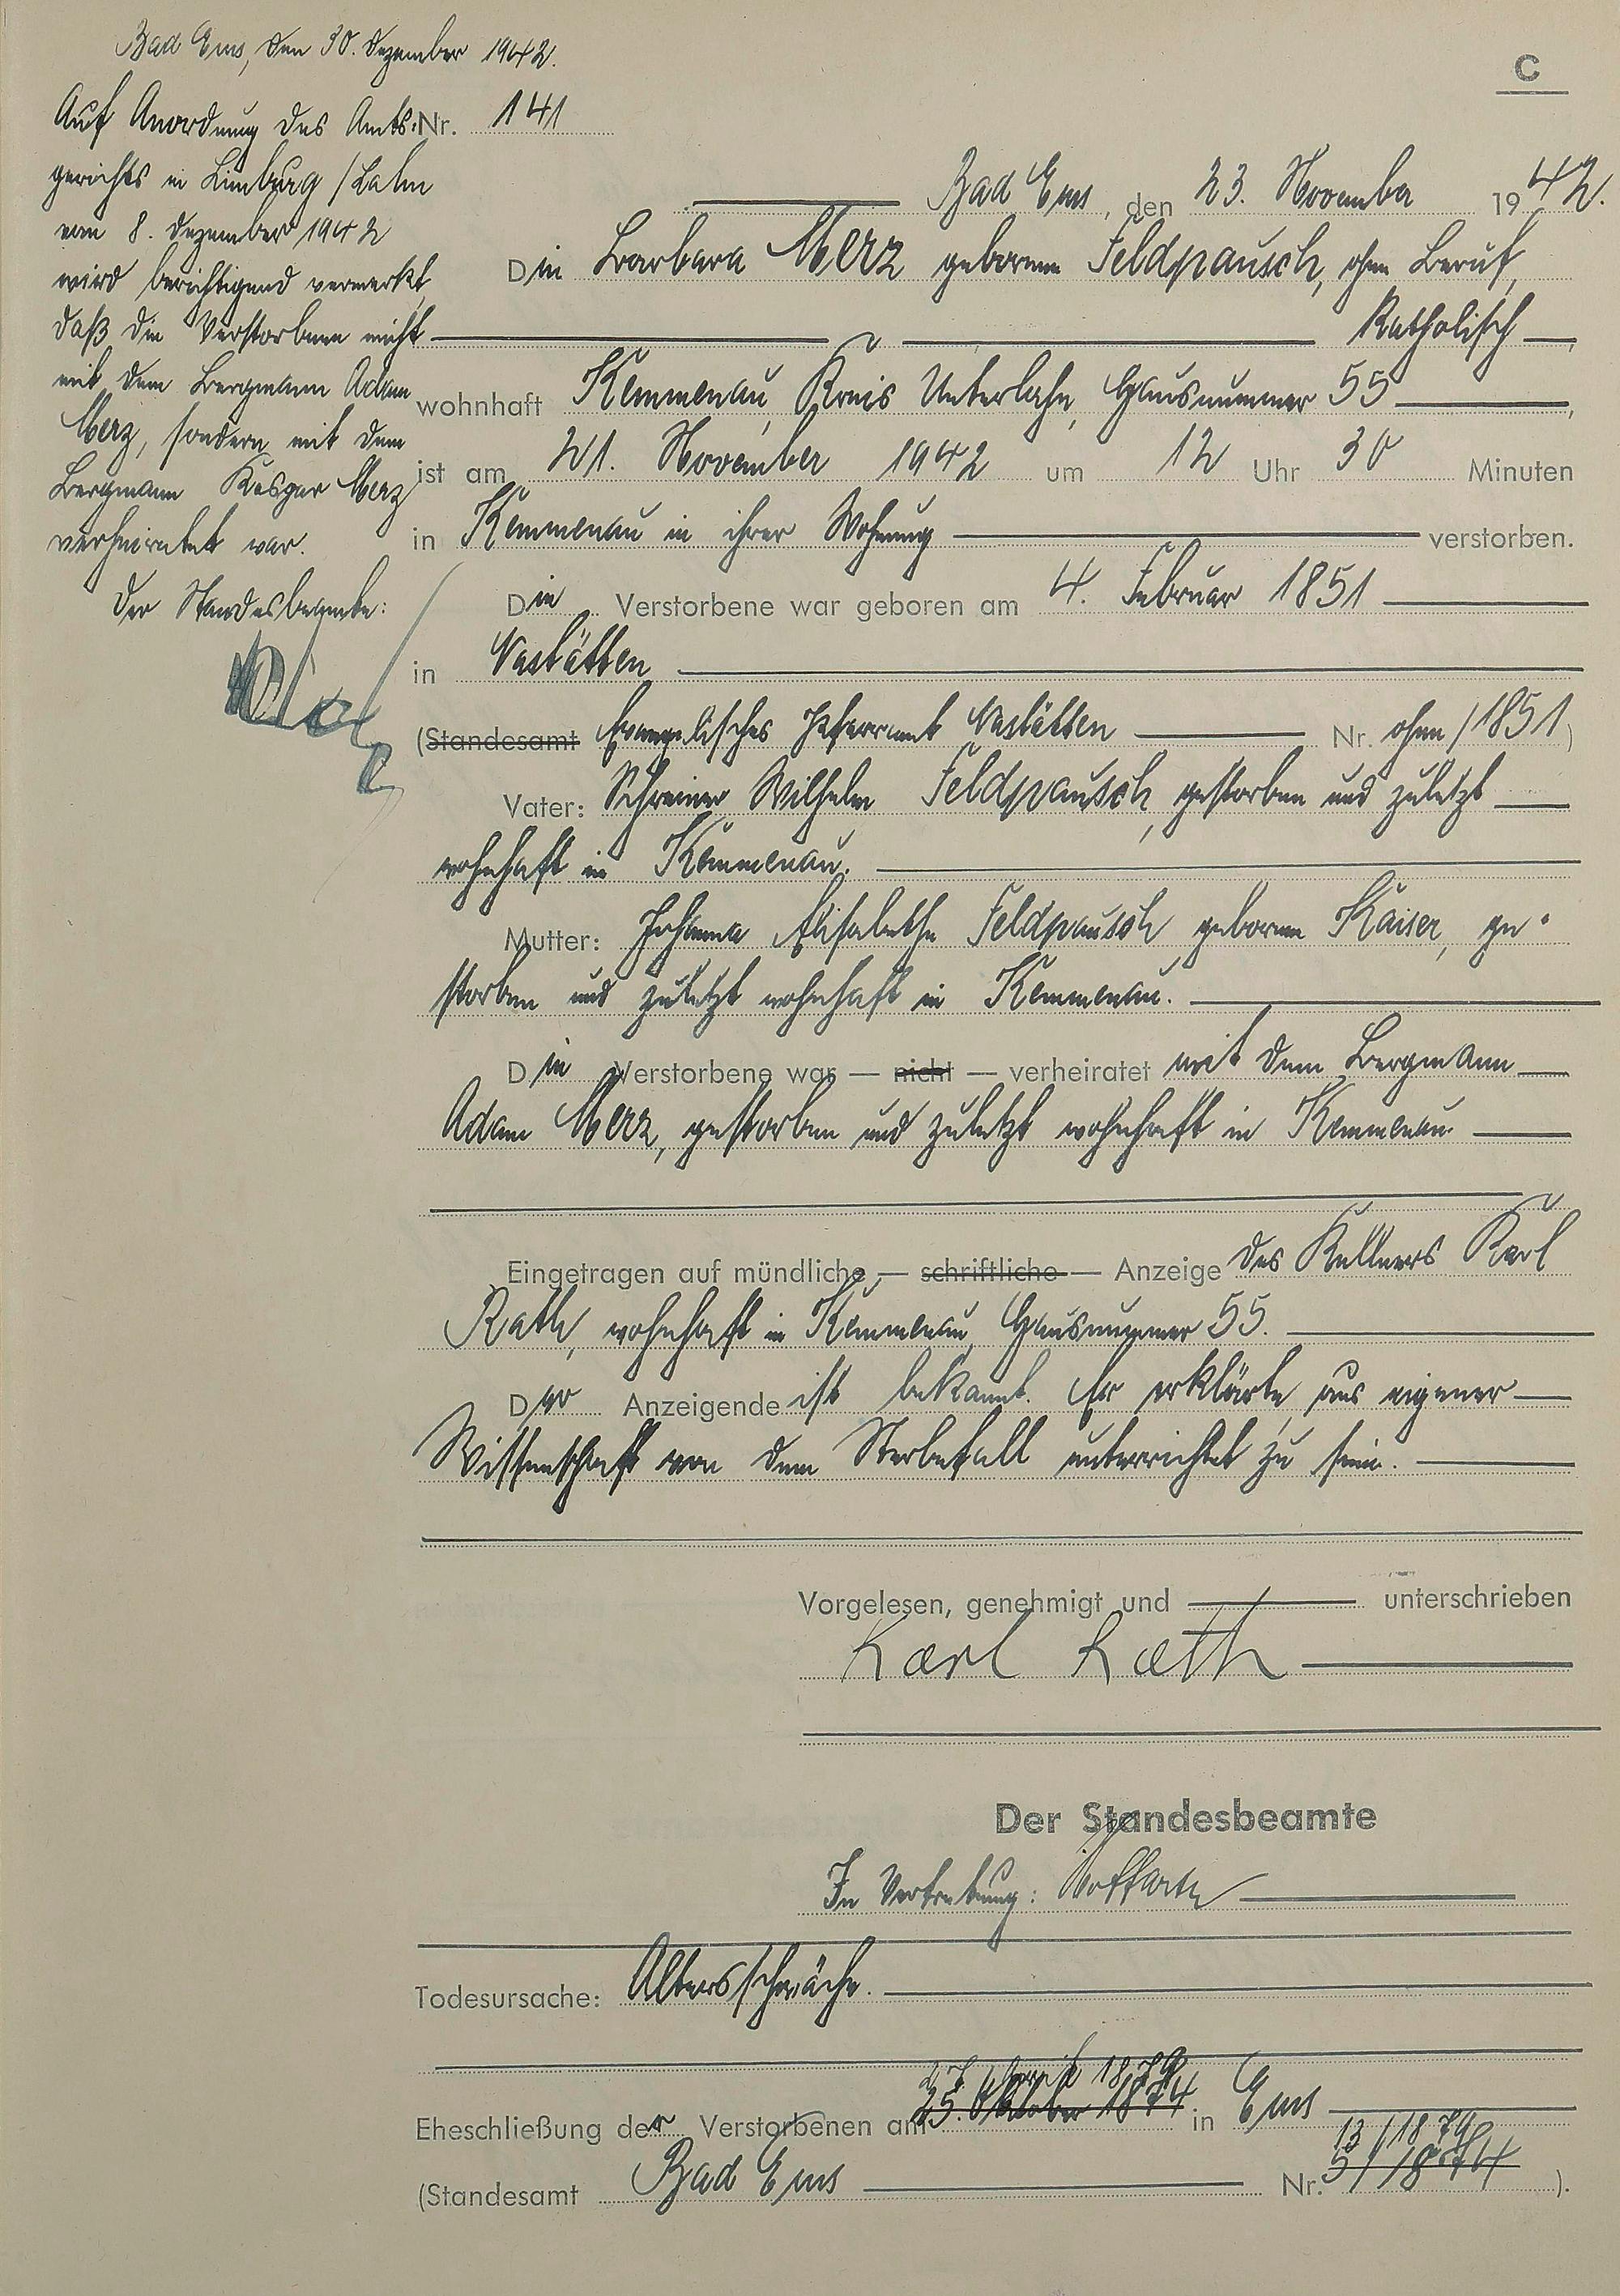 Bad Ems, den 30. Dezember 1942.
Auf Anordnung des Amts-
gerichts in Limburg / Lahn
vom 8. Dezember 1942
wird berichtigend vermerkt,
daß die Verstorbene nicht
mit dem Bergmann Adam
Merz, sondern mit dem
Bergmann Kaspar Merz
verheiratet war.
Der Standesbeamte:
C
Nr. 141
Bad Ems, den 23. November 1942.
Die Barbara Merz geborene Feldpausch, ohne Beruf,
Katholisch,
wohnhaft Kemmenau, Kreis Unterlahn, Hausnummer 55,
ist am 21. November 1942 um 12 Uhr 30 Minuten
in Kemmenau in ihrer Wohnung verstorben.
Die Verstorbene war geboren am 4. Februar 1851
in Nastätten
(Standesamt Evangelisches Pfarramt Nastätten Nr. ohne / 1851)
Vater: Schreiner Wilhelm Feldpausch, gestorben und zuletzt
wohnhaft in Kemmenau.
Mutter: Johanna Elisabethe Feldpausch geborene Kaiser, ge-
storben und zuletzt wohnhaft in Kemmenau.
Die Verstorbene war — nicht — verheiratet mit dem Bergmann
Adam Merz, gestorben und zuletzt wohnhaft in Kemmenau.
Eingetragen auf mündliche — schriftliche — Anzeige des Kellners Karl
Rath, wohnhaft in Kemmenau, Hausnummer 55.
Der Anzeigende ist bekannt. Er erklärte, aus eigener
Wissenschaft von dem Sterbefall unterrichtet zu sein.
Vorgelesen, genehmigt und unterschrieben
Karl Rath
Der Standesbeamte
In Vertretung:
Todesursache: Altersschwäche.
1879
Eheschließung der Verstorbenen am 25. Oktober 1874 in Ems
13 / 1879
(Standesamt Bad Ems Nr. 5 / 1874 ).